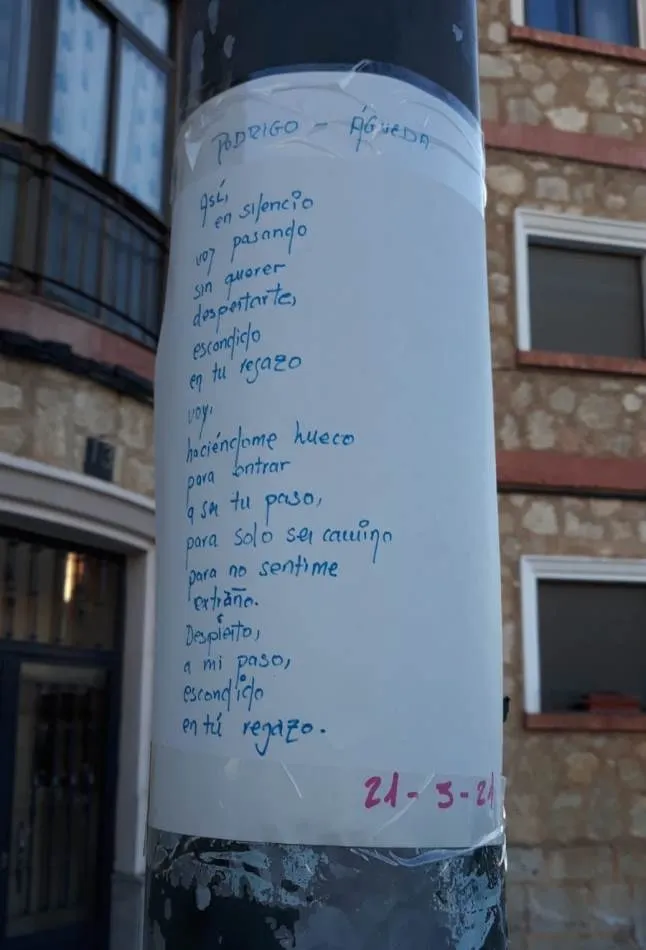 RODRIGO - ÁGUEDA
Así,
en silencio
voy pasando
sin querer
despertarte,
escondido
en tu regazo
voy,
haciéndome hueco
para entrar
a ser tu paso,
para solo ser camino
para no sentime
extraño.
Despierto,
a mi paso,
escondido
en tú regazo.
21-3-21